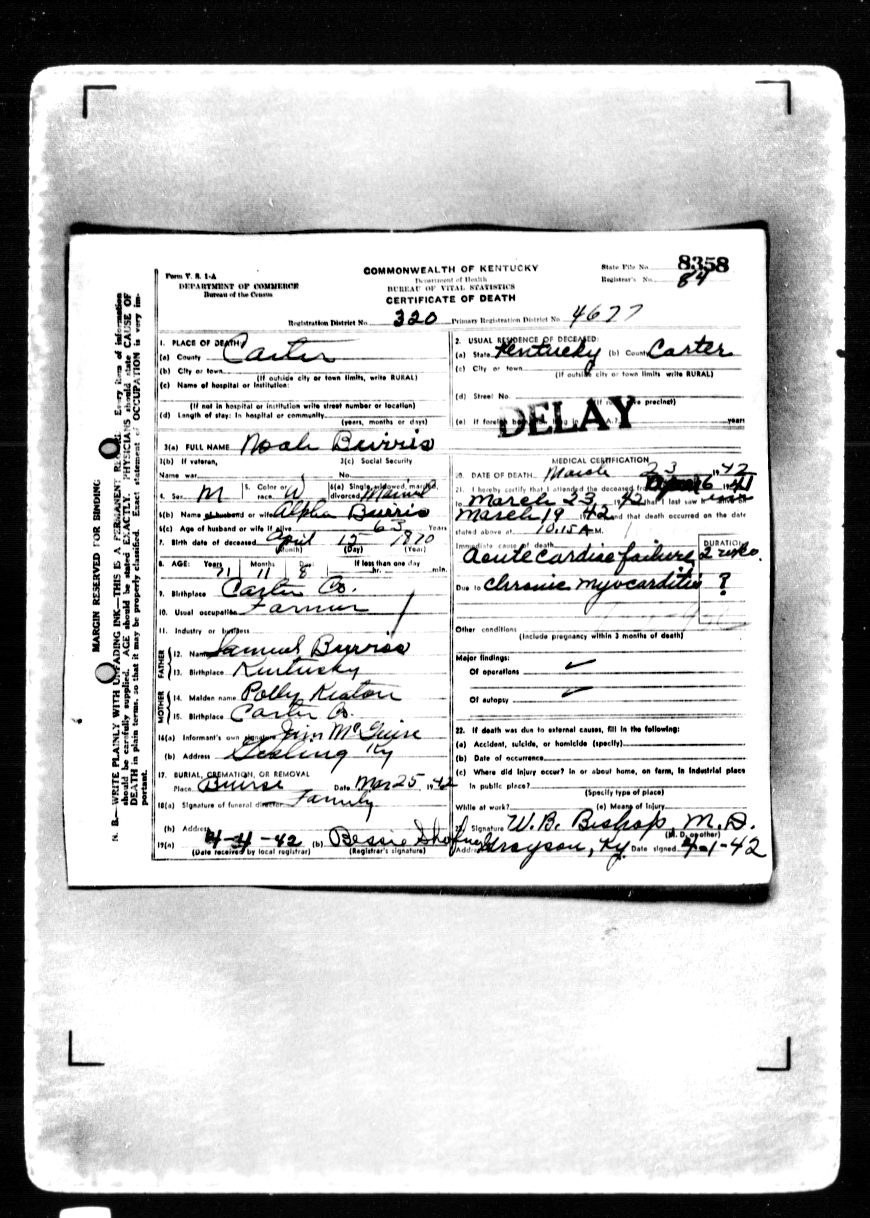 N. B.—WRITE PLAINLY WITH UNFADING INK—THIS IS A PERMANENT RECORD. Every item of information
should be carefully supplied. AGE should be stated EXACTLY. PHYSICIANS should state CAUSE OF
DEATH in plain terms, so that it may be properly classified. Exact statement of OCCUPATION is very im-
portant.
MARGIN RESERVED FOR BINDING
Form V. S. 1-A
DEPARTMENT OF COMMERCE
Bureau of the Census
COMMONWEALTH OF KENTUCKY
Department of Health
BUREAU OF VITAL STATISTICS
CERTIFICATE OF DEATH
State File No. 8358
Registrar's No. 84
Registration District No. 320 Primary Registration District No. 4677
1. PLACE OF DEATH:
(a) County Carter
(b) City or town
(If outside city or town limits, write RURAL)
(c) Name of hospital or institution:
(If not in hospital or institution write street number or location)
(d) Length of stay: In hospital or community
(years, months or days)
2. USUAL RESIDENCE OF DECEASED:
(a) State Kentucky (b) County Carter
(c) City or town
(If outside city or town limits write RURAL)
(d) Street No.
precinct)
DELAY
(e) If foreign born, years
3(a) FULL NAME Noah Burris
3(b) If veteran, 3(c) Social Security
Name war No.
4. Sex M 5. Color or race W 6(a) Single, widowed, married, divorced
6(b) Name of husband or wife Alpha Burris
6(c) Age of husband or wife if alive 63 Years
7. Birth date of deceased April 15 1870
(Month) (Day) (Year)
8. AGE: Years Months Days If less than one day
71 11 8 hr. min.
9. Birthplace Carter Co.
10. Usual occupation Farmer
11. Industry or business
FATHER
12. Name Samuel Burriss
13. Birthplace Kentucky
MOTHER
14. Maiden name Polly Keaton
15. Birthplace Carter Co.
16(a) Informant's own signature Jim McGuire
(b) Address Ky
17. BURIAL, CREMATION, OR REMOVAL
Place Date Mar 25 1942
18(a) Signature of funeral director Family
(b) Address
19(a) 4-4-42 (b) Bessie
(Date received by local registrar) (Registrar's signature)
MEDICAL CERTIFICATION
20. DATE OF DEATH March 23 1942
21. I hereby certify that I attended the deceased from 6 1941
to March 23, 1942 that I last saw h
March 19 1942 and that death occurred on the date
stated above at 10:15 A M.
Immediate cause of death DURATION
Acute Cardiac failure 2 wks.
Due to Chronic Myocarditis ?
Other conditions
(Include pregnancy within 3 months of death)
Major findings:
Of operations
Of autopsy
22. If death was due to external causes, fill in the following:
(a) Accident, suicide, or homicide (specify)
(b) Date of occurrence
(c) Where did injury occur? in or about home, on farm, in industrial place
in public place?
(Specify type of place)
While at work? (e) Means of injury
23. Signature W. B. Bishop M. D.
(M. D. or other)
Address Grayson, Ky. Date signed 4-1-42